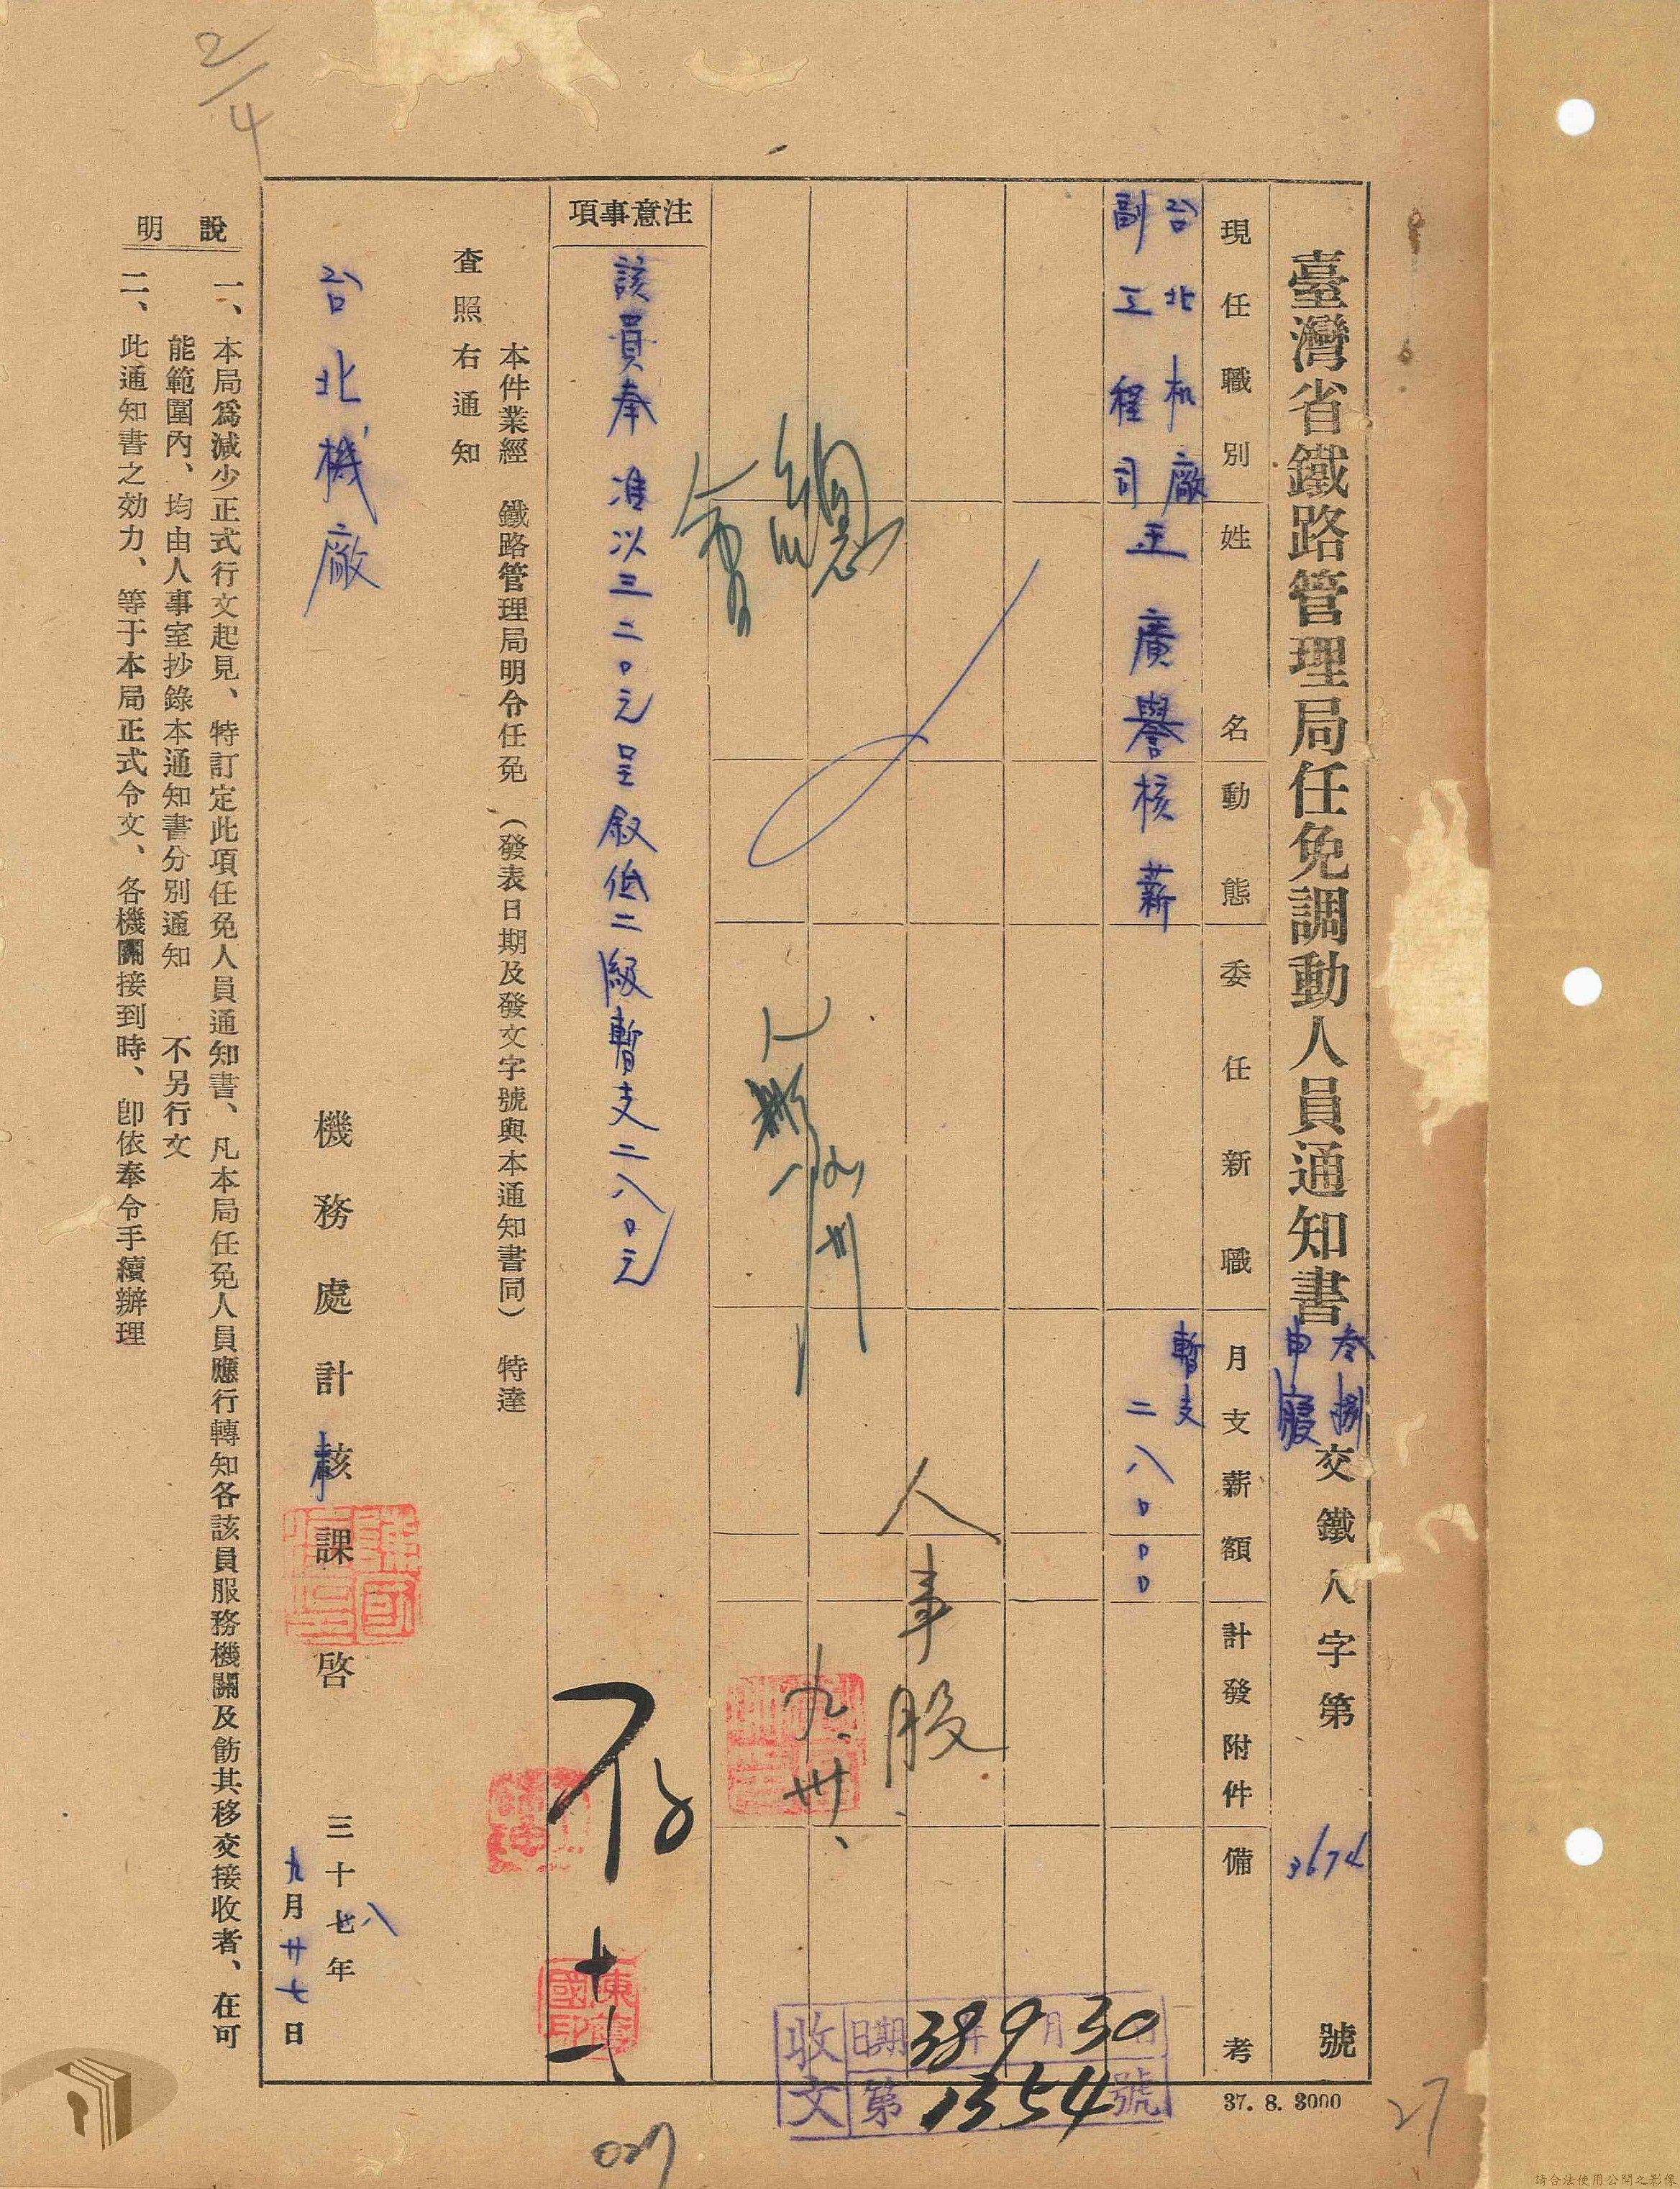 臺灣省鐵路管理局任免調動人員通知書
叁捌
申寢
交鐵人字第3674號
現任職別
姓名
動態
委任新職
月支薪額
計發附件
備考
台北机廠
副工程司
王廣譽
核薪
暫支
二八〇〇〇
總
人事股
九、卅、
注意事項
該員奉准以三二〇元呈敍低二級暫支二八〇元
存
十一
陳
國
印
本件業經 鐵路管理局明令任免(發表日期及發文字號與本通知書同) 特達
查照右通知
台北機廠
機務處計核課啓
三十八年
九月廿七日
說明
一、本局爲減少正式行文起見、特訂定此項任免人員通知書、凡本局任免人員應行轉知各該員服務機關及飭其移交接收者、在可
能範圍內、均由人事室抄錄本通知書分別通知 不另行文
二、此通知書之効力、等于本局正式令文、各機關接到時、卽依奉令手續辦理
收文
日期38年9月30日
第1354號
37. 8. 3000
2/4
27
027
請合法使用公開之影像